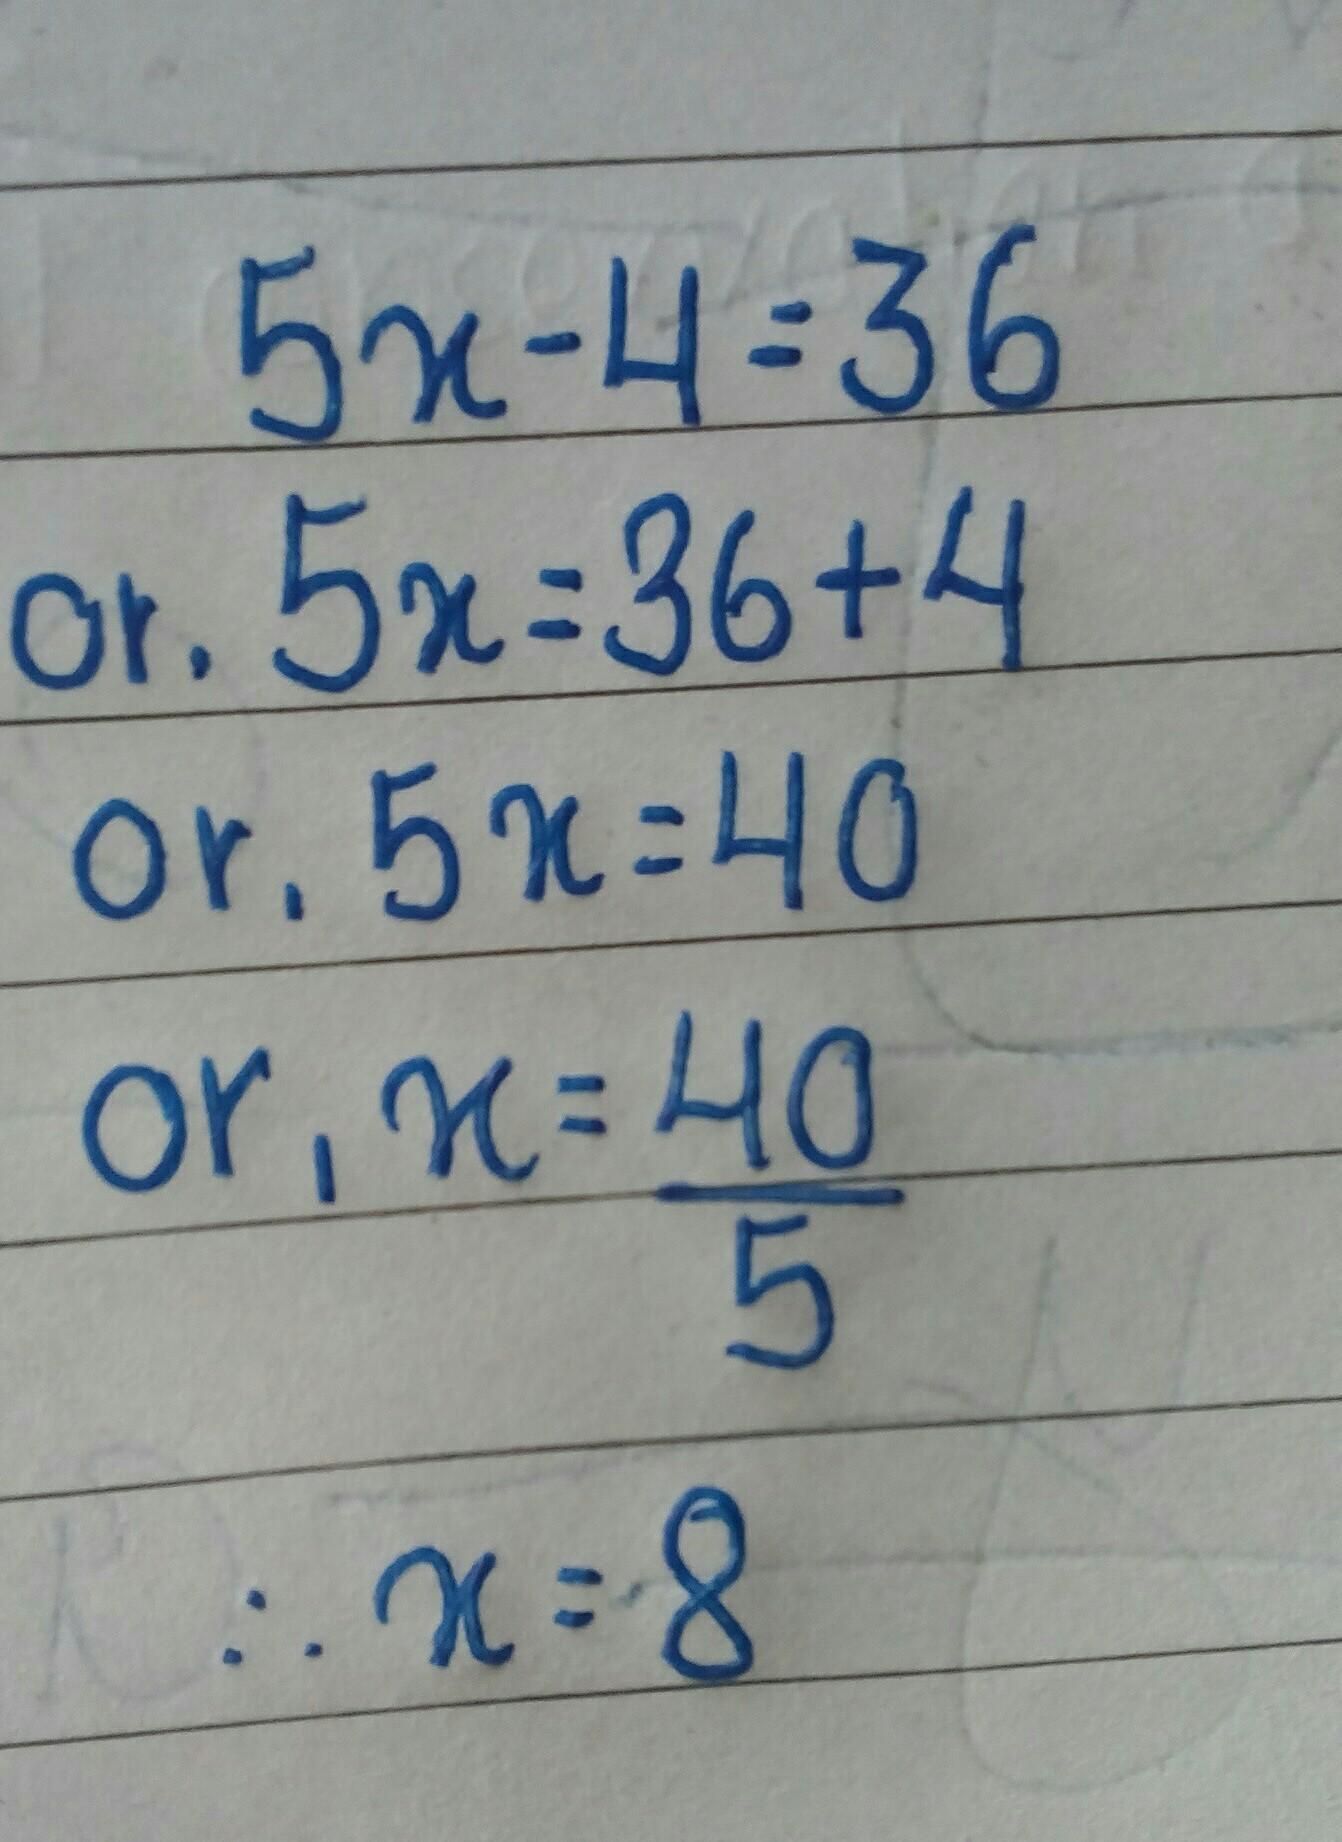 5x-4=36
or. 5x=36+4
or, 5x=40
or, x=40/5
∴ x=8